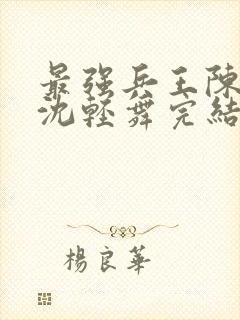 最强兵王陳
沈輕舞完結
楊良華